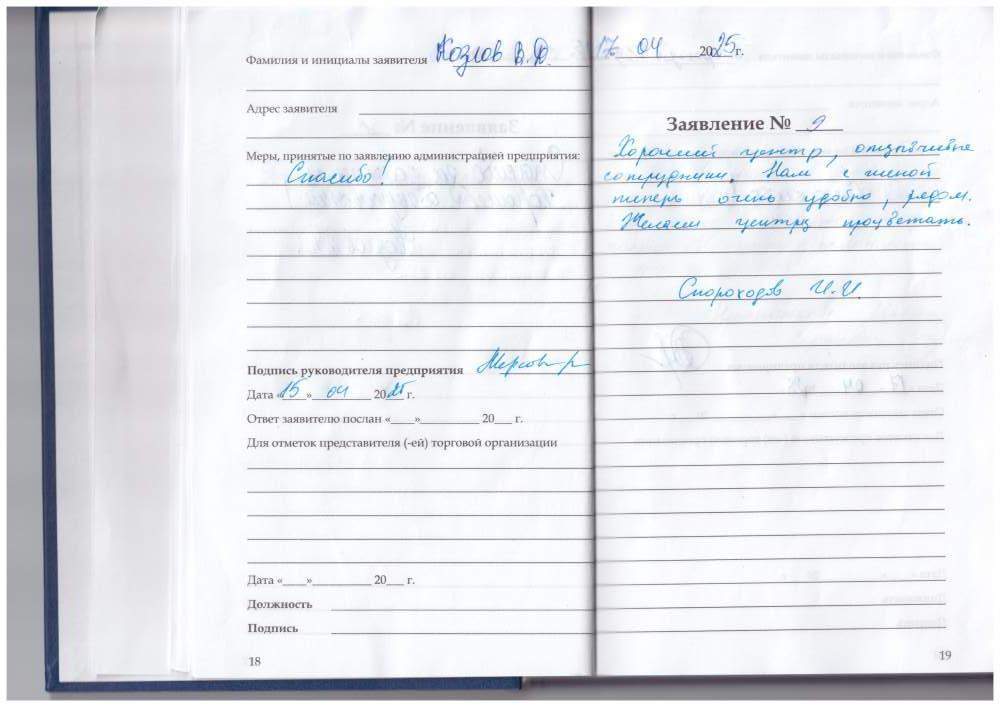 Фамилия и инициалы заявителя Козлов В.Д.
Адрес заявителя
Меры, принятые по заявлению администрацией предприятия:
Спасибо!
Подпись руководителя предприятия
Дата «15» 04 2025 г.
Ответ заявителю послан «____»__________ 20___ г.
Для отметок представителя (-ей) торговой организации
Дата «____»__________ 20___ г.
Должность
Подпись
18
17 04 2025г.
Заявление № 9
Хороший центр, отзывчивые
сотрудники. Нам с женой
теперь очень удобно, рядом.
Желаем центру процветать.
Скороходов И.И.
19